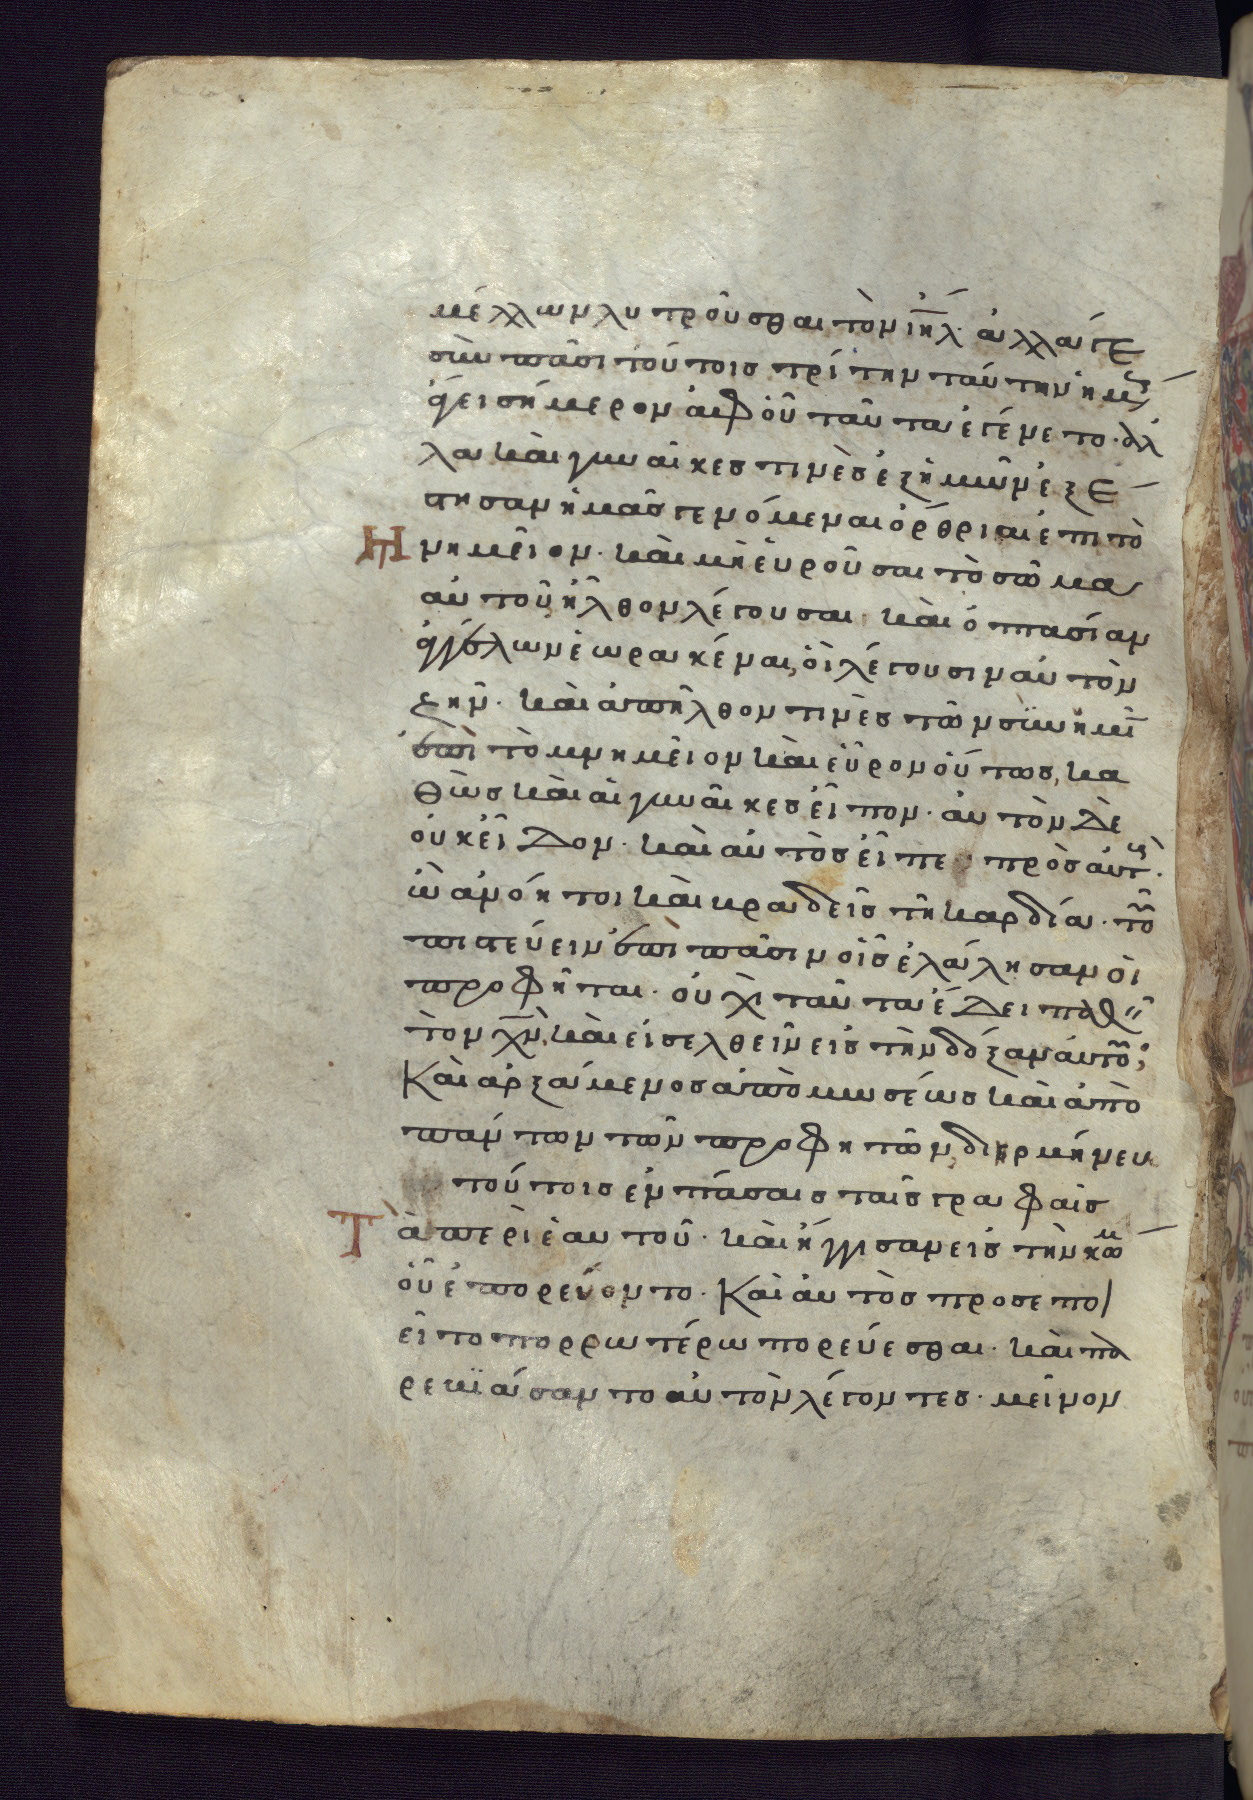 μέλλων λυτροῦσθαι τὸν ἰη̅λ· ἀλλάγε
σὺν πᾶσι τούτοις τρίτην ταύτην ἡμέ
ἄγει σήμερον ἀφοῦ ταῦτα ἐγένετο· ἀλ
λὰ καὶ γυναῖκες τινὲς ἐξ ἡμῶν ἐξέ
στησαν ἡμᾶς γενόμεναι ὄρθριαι ἐπι τὸ
μνημεῖον· καὶ μὴ εὑροῦσαι τὸ σῶμα
αὐτοῦ, ἦλθον λέγουσαι καὶ ὀπτασίαν
ἀγγέλων ἑωρακέναι, οἳ λέγουσιν αὐτὸν
ζῆν· καὶ ἀπῆλθον τινὲς τῶν σὺν ἡμῖ
ἐπὶ τὸ μνημεῖον καὶ εὗρον οὕτως, κα
θὼς καὶ αἱ γυναῖκες εἶπον· αὐτὸν δὲ
οὐκ εἶδον· καὶ αὐτὸς εἶπε πρὸς αὐτούς·
ὦ ἀνόητοι καὶ βραδεῖς τῆ καρδία· τοῦ
πιστεύειν ἐπὶ πᾶσιν οἷς ἐλάλησαν οἱ
προφῆται· οὐχὶ ταῦτα ἔδει παθεῖν
τὸν χν̅, καὶ εἰσελθεῖν εἰς τὴν δόξαν αὐτοῦ;
Καὶ ἀρξάμενος ἀπὸ μωσέως καὶ ἀπὸ
πάντων τῶν προφητῶν, διηρμήνευ
τούτοις ἐν πάσαις ταῖς γραφαῖς
Τὰ περὶ ἑαυτοῦ· καὶ ἤγγισαν εἰς τὴν κώμ
οὗ ἐπορεύοντο· Καὶ αὐτὸς προσεπο
εῖτο πορρωτέρω πορεύεσθαι· καὶ πα
ρεβιάσαντο αὐτὸν λέγοντες· μεῖνον